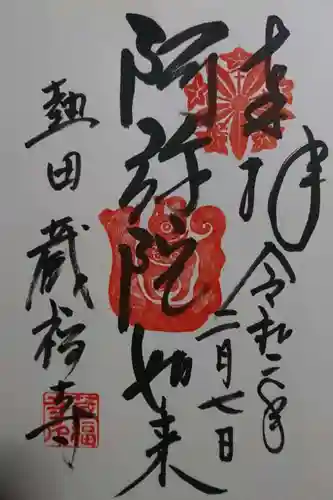 奉拝
令和二年
二月七日
阿弥陀如来
熱田 蔵福寺